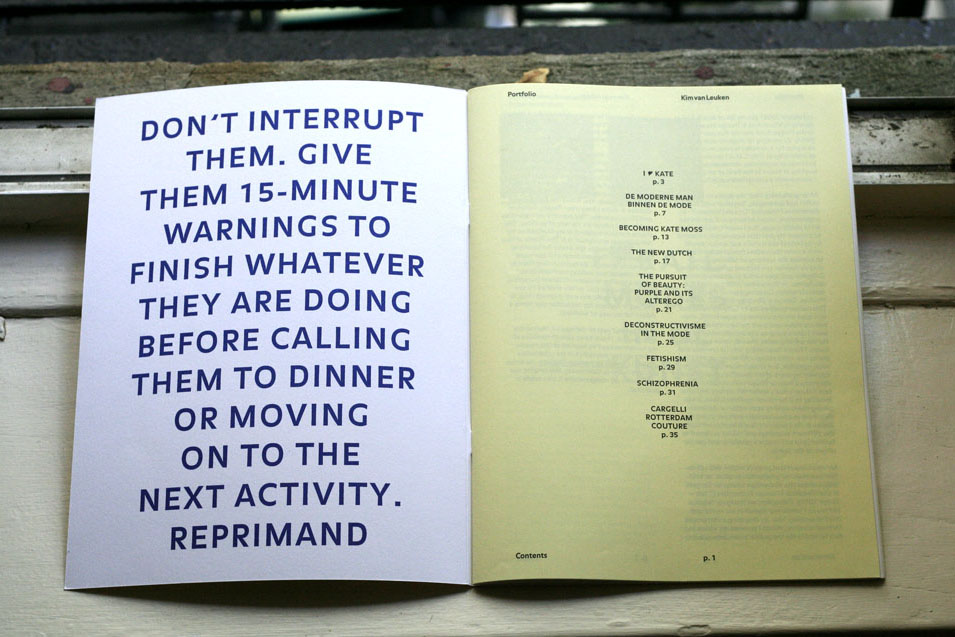 DON'T INTERRUPT
THEM. GIVE
THEM 15-MINUTE
WARNINGS TO
FINISH WHATEVER
THEY ARE DOING
BEFORE CALLING
THEM TO DINNER
OR MOVING
ON TO THE
NEXT ACTIVITY.
REPRIMAND
Portfolio
Kim van Leuken
I ♥ KATE
p. 3
DE MODERNE MAN
BINNEN DE MODE
p. 7
BECOMING KATE MOSS
p. 13
THE NEW DUTCH
p. 17
THE PURSUIT
OF BEAUTY:
PURPLE AND ITS
ALTEREGO
p. 21
DECONSTRUCTIVISME
IN THE MODE
p. 25
FETISHISM
p. 29
SCHIZOPHRENIA
p. 31
CARGELLI
ROTTERDAM
COUTURE
p. 35
Contents
p. 1